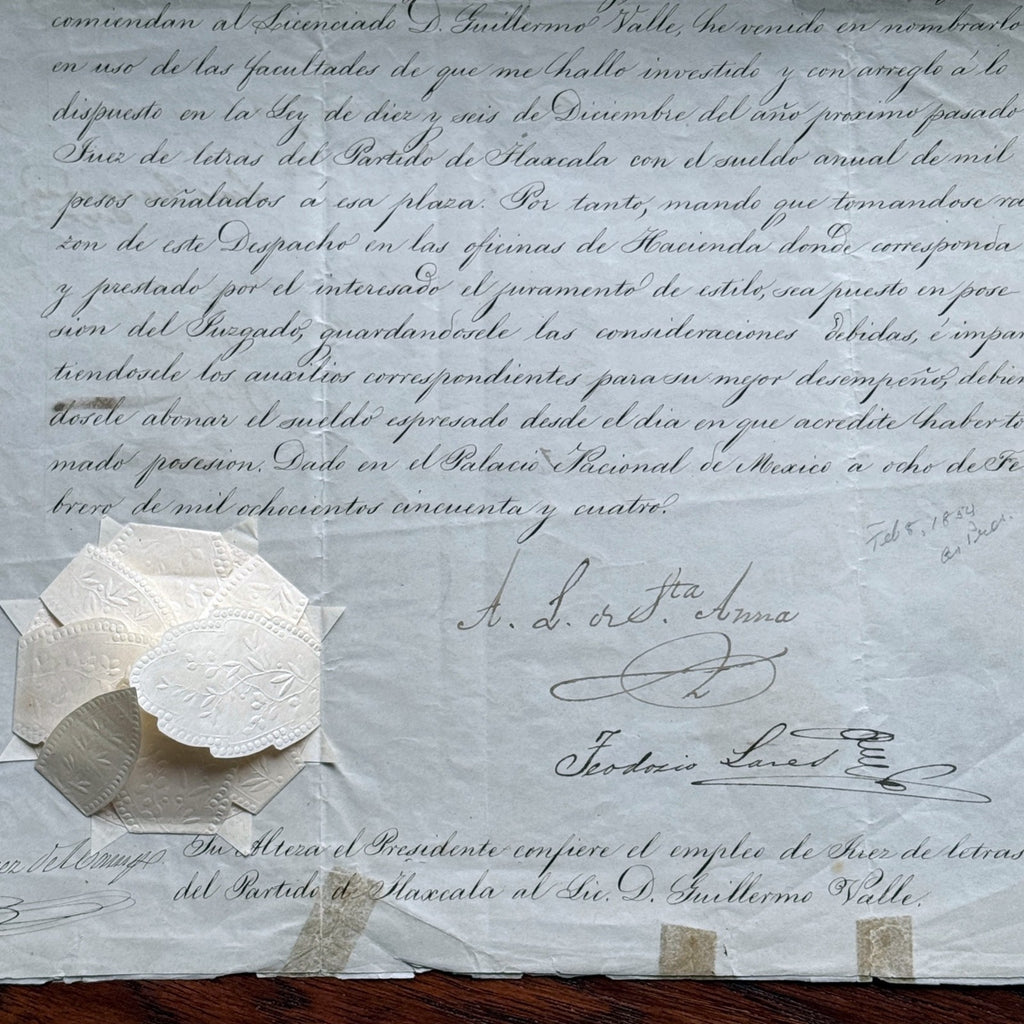 comiendan al Licenciado D. Guillermo Valle, he venido en nombrarlo
en uso de las facultades de que me hallo investido y con arreglo á lo
dispuesto en la Ley de diez y seis de Diciembre del año proximo pasado
Juez de letras del Partido de Tlaxcala con el sueldo anual de mil
pesos señalados á esa plaza. Por tanto, mando que tomandose ra
zon de este Despacho en las oficinas de Hacienda donde corresponda
y prestado por el interesado el juramento de estilo, sea puesto en pose
sion del Juzgado, guardandosele las consideraciones debidas, é impar
tiendosele los auxilios correspondientes para su mejor desempeño, debien
dosele abonar el sueldo espresado desde el dia en que acredite haber to
mado posesion. Dado en el Palacio Nacional de Mexico a ocho de Fe
brero de mil ochocientos cincuenta y cuatro.
Feb 8, 1854
as Pres.
A. L. de Sta. Anna
Teodosio Lares
Su Alteza el Presidente confiere el empleo de Juez de letras
del Partido de Tlaxcala al Lic. D. Guillermo Valle.